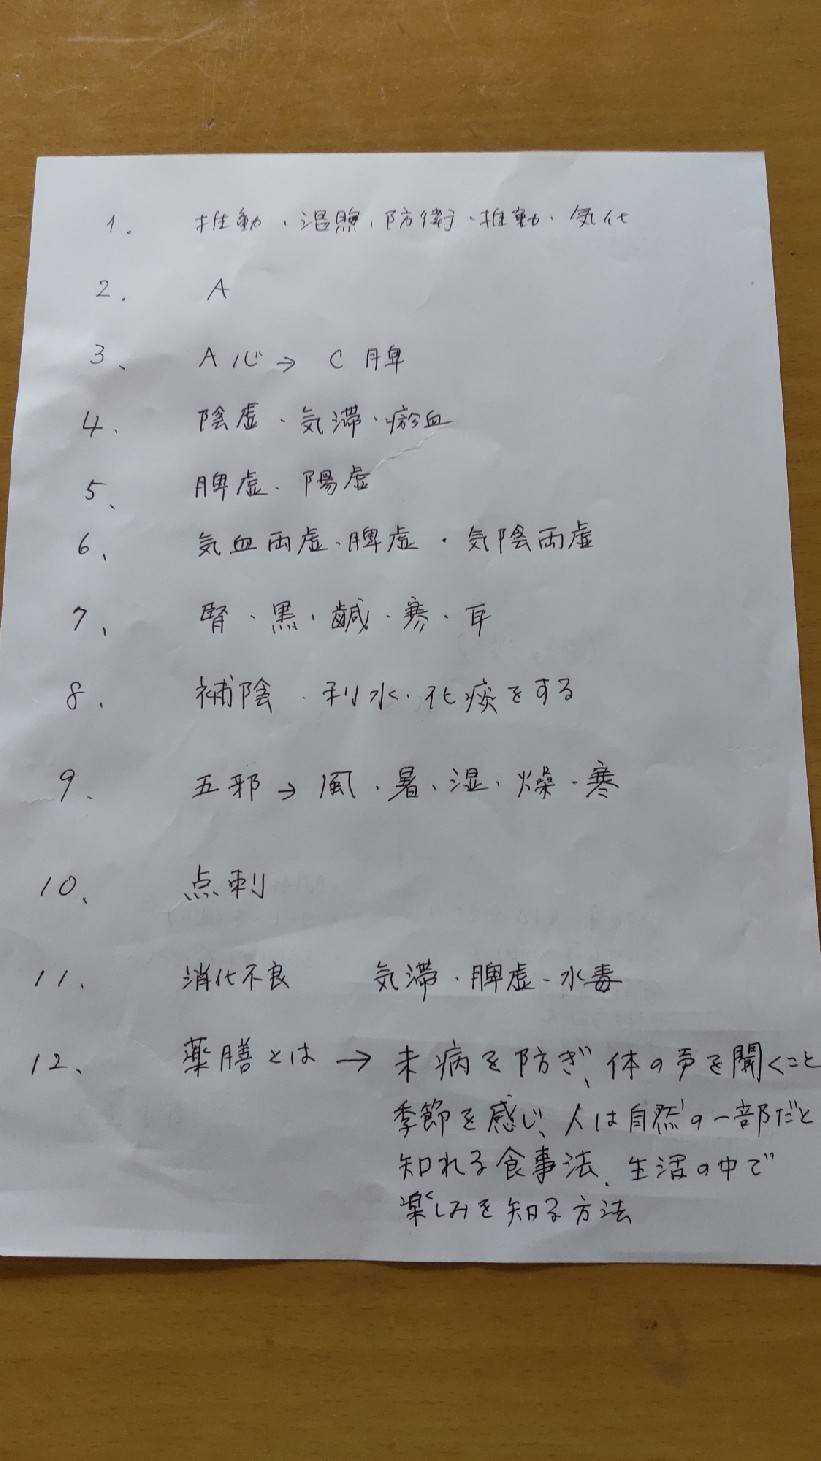 1. 推動、温煦、防衛・推動・気化
2. A
3、 A 心→ C 脾
4. 陰虚・気滞・瘀血
5、 脾虚・陽虚
6、 気血両虚・脾虚・気陰両虚
7、 腎・黒・鹹・寒・耳
8. 補陰・利水・化痰をする
9、 五邪→風・暑・湿・燥・寒
10、 点刺
11. 消化不良 気滞・脾虚・水毒
12、 薬膳とは → 未病を防ぎ、体の声を聞くこと
季節を感じ、人は自然の一部だと
知れる食事法、生活の中で
楽しみを知る方法